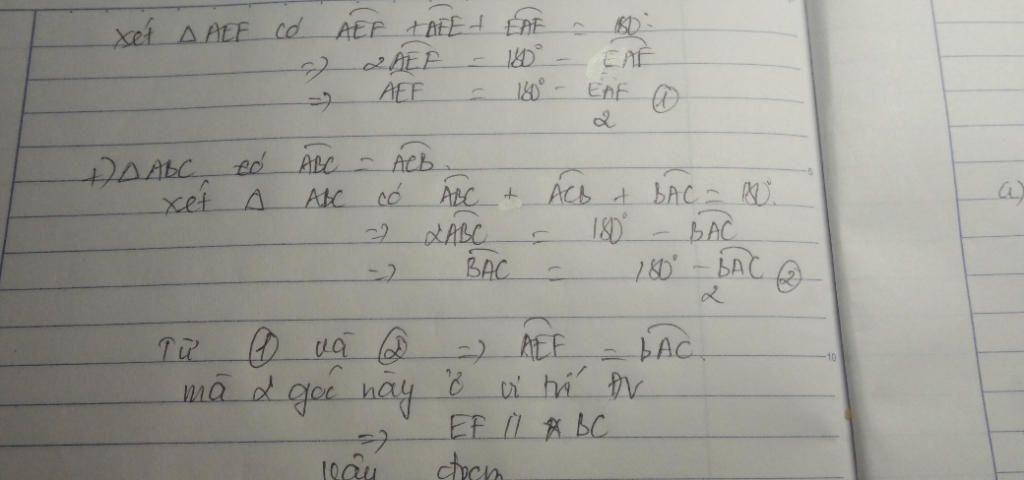 xét △AEF có AEF + AFE + EAF = 180°
=> 2AEF = 180° - EAF
=> AEF = 180° - EAF ①
2
+) △ABC có ABC = ACB.
xét △ ABC có ABC + ACB + BAC = 180°.
=> 2ABC = 180° - BAC
=> BAC = 180° - BAC ②
2
Từ ① và ② => AEF = BAC.
10
mà 2 góc này ở vị trí ĐV
=> EF // BC
Vậy đpcm
a)